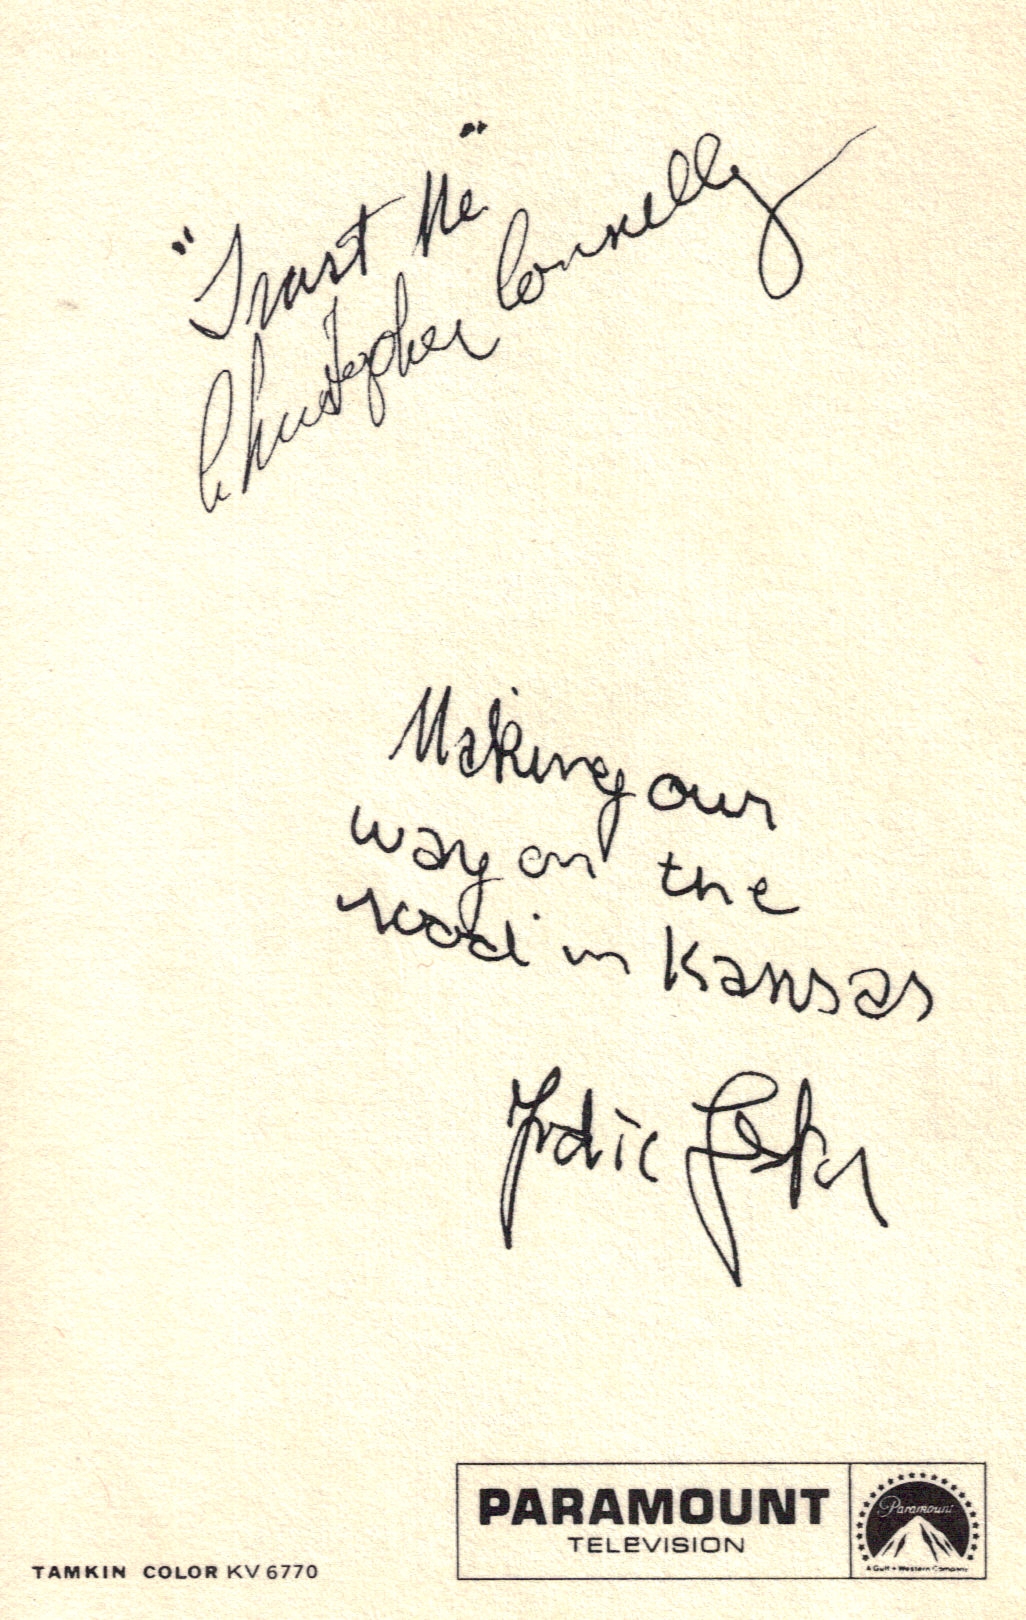 "Trust Me"
Christopher Connelly
Making our
way on the
road in Kansas
Jodie Foster
PARAMOUNT
TELEVISION
Paramount
A Gulf + Western Company
TAMKIN COLOR KV 6770